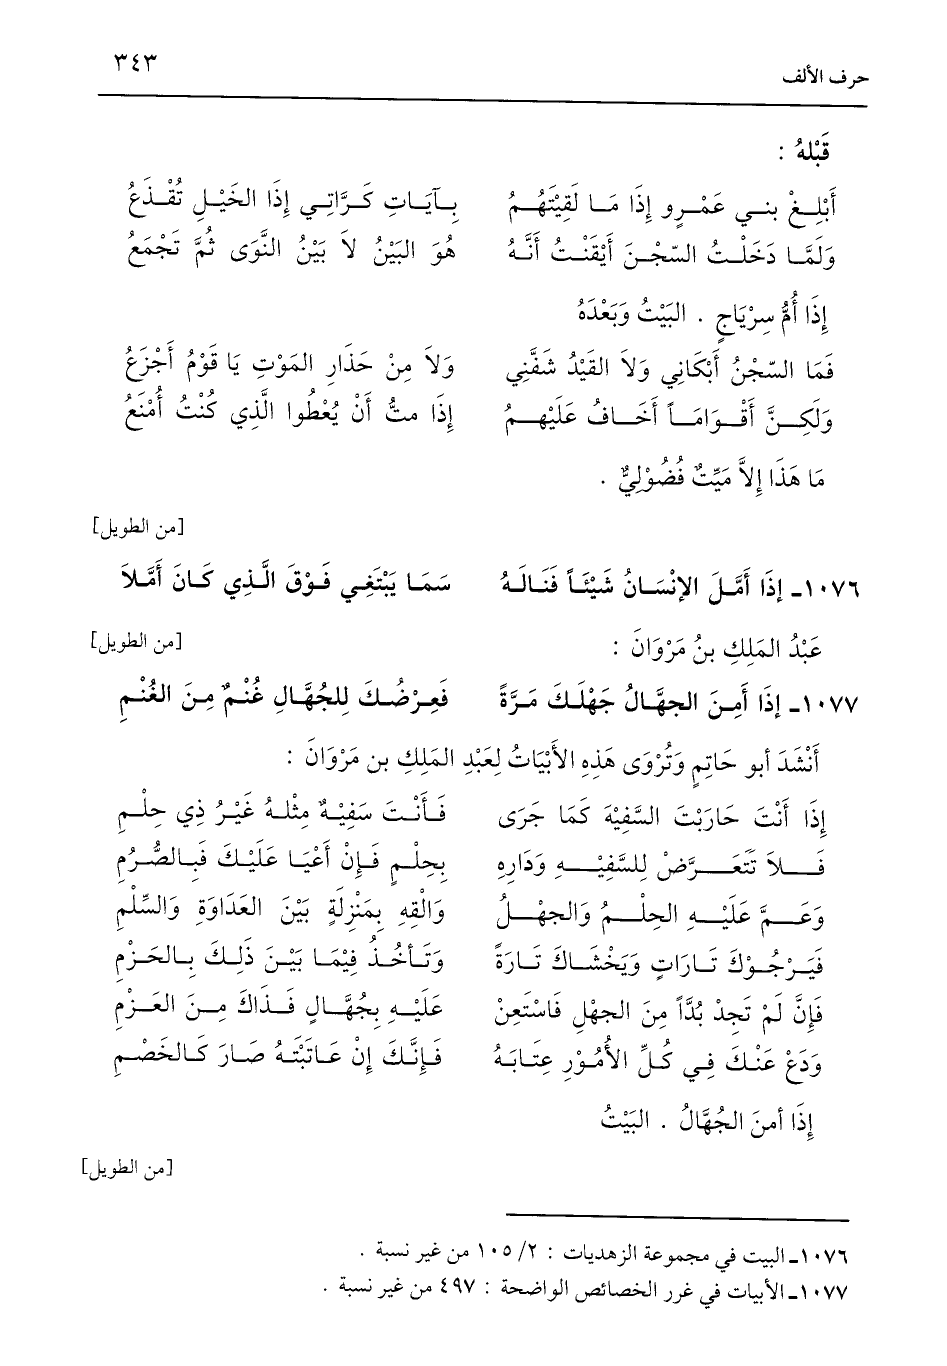 ٣٤٣
حرف الألف
قَبْلهُ :
أَبْلِغْ بنـي عَمْـرٍو إِذَا مَـا لَقِيْتَهُـمُ بـآيَـاتِ كَـرَّاتـي إِذَا الخَيْـلِ تُقْـذَعُ
وَلَمَّـا دَخَلْـتُ السّجْـنَ أَيْقَنْـتُ أَنَّـهُ هُوَ البَيْنُ لاَ بَيْنُ النَّوَى ثُمَّ تَجْمَعُ
إِذَا أُمُّ سِرْيَاحٍ . البَيْتُ وَبَعْدَهُ
فَمَا السّجْنُ أَبْكَاني وَلاَ القَيْدُ شَفَّني وَلاَ مِنْ حَذَارِ المَوْتِ يَا قَوْمُ أَجْزَعُ
وَلَكِـنَّ أَقْـوَامَـاً أَخَـافُ عَلَيْهِـمُ إِذَا متُّ أَنْ يُعْطُوا الَّذِي كُنْتُ أَمْنَعُ
مَا هَذَا إِلاَّ مَيِّتٌ فُضُوْلِيٌّ .
[من الطويل]
١٠٧٦ـ إِذَا أَمَّلَ الإِنْسَانُ شَيْئَاً فَنَالَـهُ سَمَا يَبْتَغِي فَوْقَ الَّذِي كَانَ أَمَّلاَ
عَبْدُ المَلِكِ بنُ مَرْوَانَ : [من الطويل]
١٠٧٧ـ إِذَا أَمِنَ الجهَّالُ جَهْلَكَ مَرَّةً فَعِرْضُكَ لِلجُهَّالِ غُنْمٌ مِنَ الغُنْمِ
أَنْشَدَ أبو حَاتِمٍ وَتُرْوَى هَذِهِ الأَبْيَاتُ لِعَبْدِ المَلِكِ بن مَرْوَانَ :
إِذَا أَنْتَ حَارَبْتَ السَّفِيْهَ كَمَا جَرَى فَـأَنْـتَ سَفِيْهٌ مِثْلهُ غَيْرُ ذِي حِلْـمِ
فَـلاَ تَتَعَـرَّضْ لِلسَّفِيْـهِ وَدَارِهِ بِحِلْـمٍ فَـإِنْ أَعْيَـا عَلَيْـكَ فَبِـالصُّـرُمِ
وَعَـمَّ عَلَيْـهِ الحِلْـمُ وَالجهْـلُ وَالقِهِ بِمَنْزِلَةٍ بَيْنَ العَدَاوَةِ وَالسِّلْمِ
فَيَرْجُوْكَ تَـارَاتٍ وَيَخْشَـاكَ تَـارَةً وَتَـأخُـذُ فِيْمَـا بَيْـنَ ذَلِـكَ بِـالحَـزْمِ
فَإِنَّ لَمْ تَجِدْ بُدَّاً مِنَ الجهْلِ فَاسْتَعِنْ عَلَيْـهِ بِجُهَّـالٍ فَـذَاكَ مِـنَ العَـزْمِ
وَدَعْ عَنْـكَ فِـي كُـلِّ الأُمُـوْرِ عِتَـابَـهُ فَـإِنَّـكَ إِنْ عَـاتَبْتَـهُ صَـارَ كَـالخَصْـمِ
إِذَا أمنَ الجُهَّالُ . البَيْتُ
[من الطويل]
١٠٧٦ـ البيت في مجموعة الزهديات : ٢/ ١٠٥ من غير نسبة .
١٠٧٧ـ الأبيات في غرر الخصائص الواضحة : ٤٩٧ من غير نسبة .